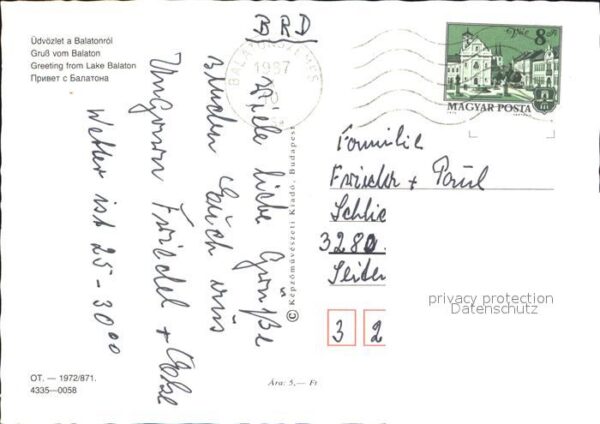 Üdvözlet a Balatonról
Gruß vom Balaton
Greeting from Lake Balaton
Привет с Балатона
BRD
Viele liebe Grüße
senden Euch aus
Ungarn Friedel +
Wetter ist 25-30⁰⁰
BALATONSZEMES
1987
10
Vác 8 Ft
MAGYAR POSTA
Familie
Frieder + Paul
Schlie
3280
3 2
privacy protection
Datenschutz
© Képzőművészeti Kiadó, Budapest
OT. — 1972/871.
4335—0058
Ára: 5,— Ft